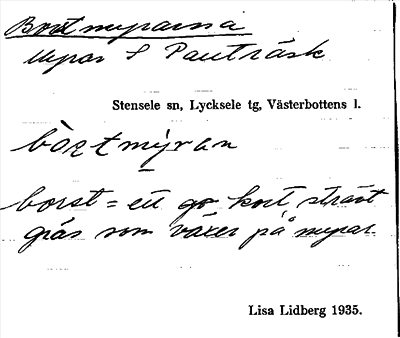 Borstmyrarna
Myrar S Pauträsk
Stensele sn, Lycksele tg, Västerbottens l.
bòṣtmýran
borst = ett kort strävt
gräs som växer på myrar.
Lisa Lidberg 1935.